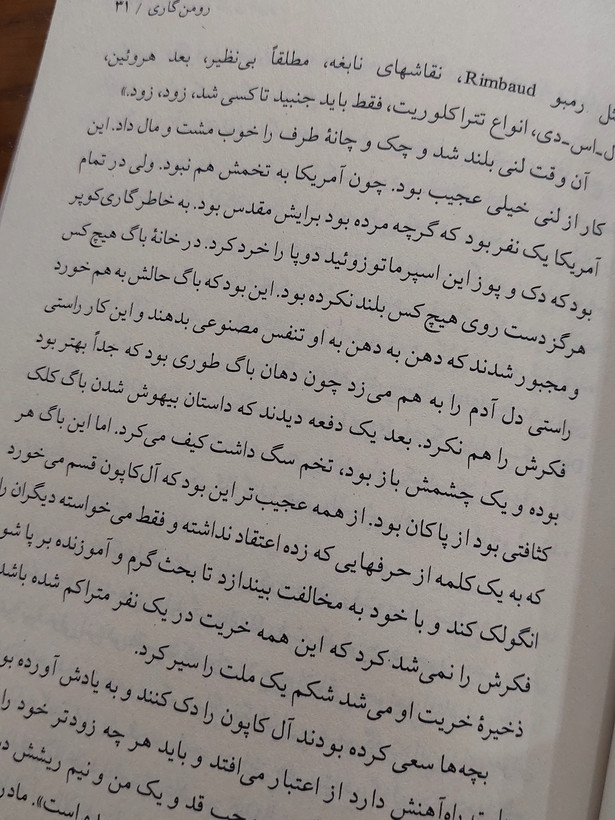 رومن‌گاری / ۳۱
رمبو Rimbaud، نقاشهای نابغه، مطلقاً بی‌نظیر، بعد هروئین،
ال‌-اس‌-دی، انواع تتراکلوریت، فقط باید جنبید تا کسی شد، زود، زود.»
آن وقت لنی بلند شد و چک و چانهٔ طرف را خوب مشت و مال داد. این
کار از لنی خیلی عجیب بود. چون آمریکا به تخمش هم نبود. ولی در تمام
آمریکا یک نفر بود که گرچه مرده بود برایش مقدس بود. به خاطر گاری‌کوپر
بود که دک و پوز این اسپرماتوزوئید دوپا را خرد کرد. در خانهٔ باگ هیچ‌کس
هرگز دست روی هیچ کس بلند نکرده بود. این بود که باگ حالش به هم خورد
و مجبور شدند که دهن به دهن به او تنفس مصنوعی بدهند و این کار راستی
راستی دل آدم را به هم می‌زد چون دهان باگ طوری بود که جداً بهتر بود
فکرش را هم نکرد. بعد یک دفعه دیدند که داستان بیهوش شدن باگ کلک
بوده و یک چشمش باز بود، تخم سگ داشت کیف می‌کرد. اما این باگ هر
کثافتی بود از پاکان بود. از همه عجیب‌تر این بود که آل‌کاپون قسم می‌خورد
که به یک کلمه از حرفهایی که زده اعتقاد نداشته و فقط می‌خواسته دیگران را
انگولک کند و با خود به مخالفت بیندازد تا بحث گرم و آموزنده بر پا شو
فکرش را نمی‌شد کرد که این همه خریت در یک نفر متراکم شده باشد
ذخیرهٔ خریت او می‌شد شکم یک ملت را سیر کرد.
بچه‌ها سعی کرده بودند آل کاپون را دک کنند و به یادش آورده بو
راه‌آهنش دارد از اعتبار می‌افتد و باید هر چه زودتر خود را
قد و یک من و نیم ریشش
است». مادر